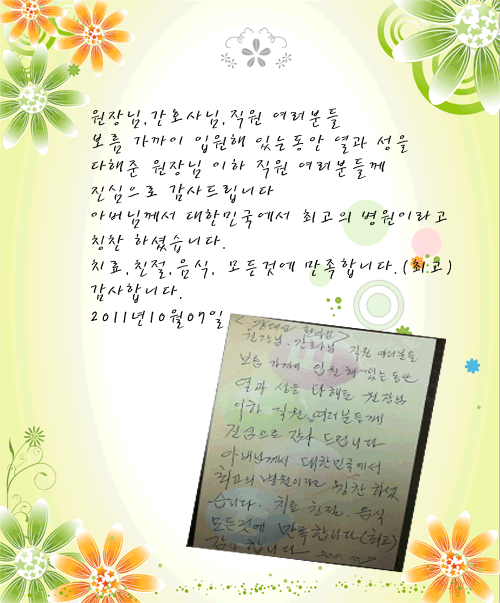 원장님,간호사님,직원 여러분들
보름 가까이 입원해 있는동안 열과 성을
다해준 원장님 이하 직원 여러분들께
진심으로 감사드립니다
아버님께서 대한민국에서 최고의 병원이라고
칭찬 하셨습니다.
치료,친절,음식, 모든것에 만족합니다.(최고)
감사합니다.
2011년10월07일
원장님, 간호사님 직원 여러분들
보름 가까이 입원해 있는동안
열과 성을 다해준 원장님
이하 직원 여러분들께
진심으로 감사 드립니다
아버님께서 대한민국에서
최고의 병원이라고 칭찬 하셨
습니다. 치료 친절, 음식
모든것에 만족합니다(최고)
감사합니다 2011.10.7